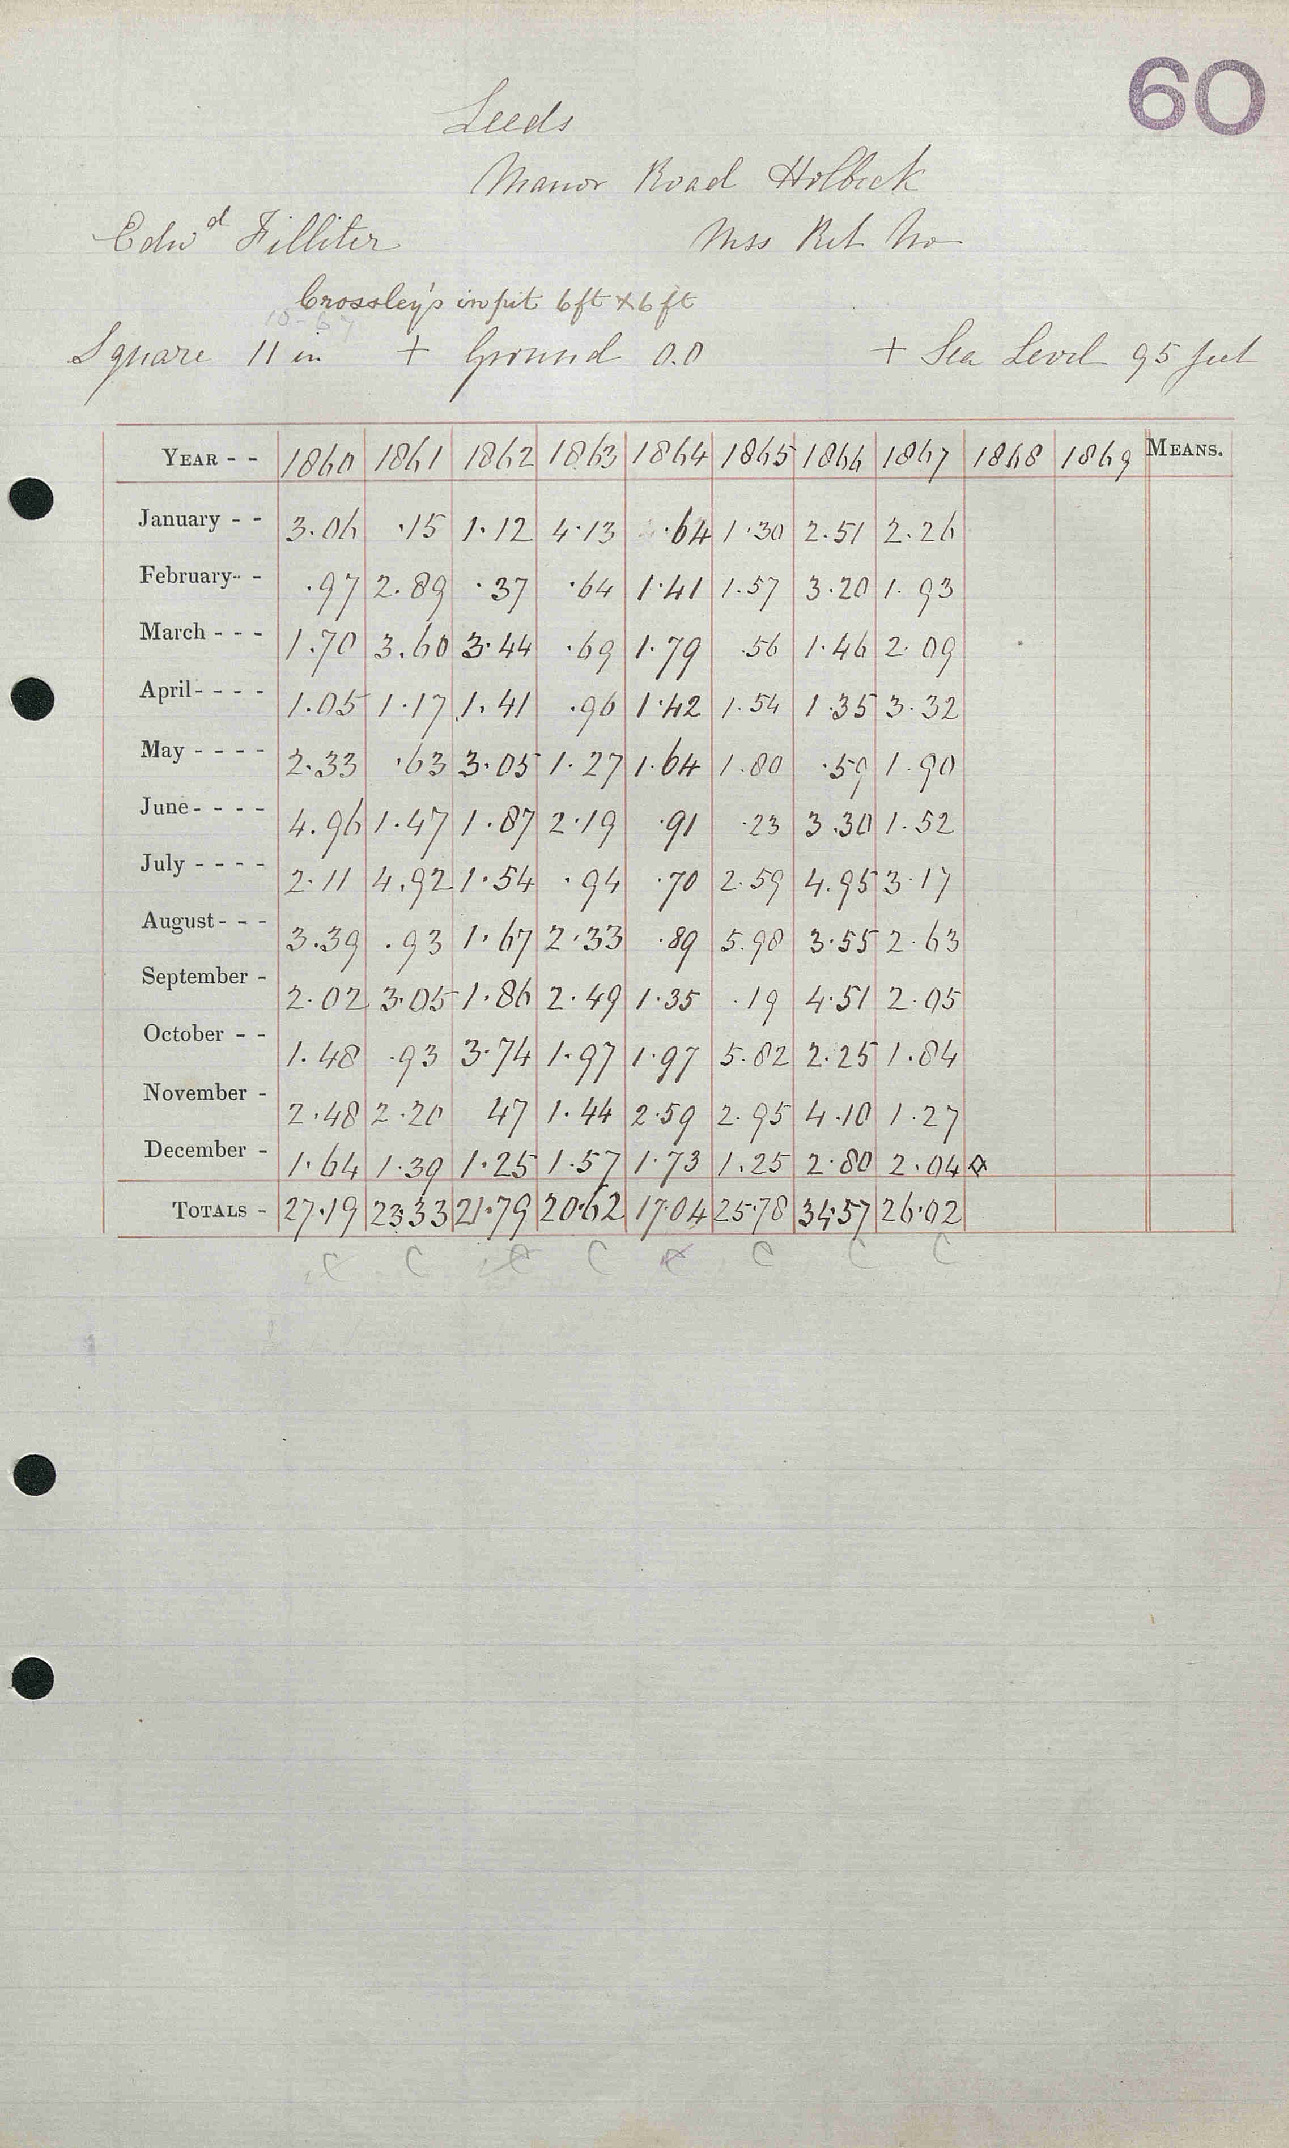 60
Leeds
Manor Road Holbeck
Edwd Filliter Mss Ret No
Crossley's in pit 6ft x 6ft
Square 11 in + Ground 0.0 + Sea Level 95 feet
YEAR - - 1860 1861 1862 1863 1864 1865 1866 1867 1868 1869 MEANS.
January - - 3.06 .15 1.12 4.13 .64 1.30 2.51 2.26
February- - .97 2.89 .37 .64 1.41 1.57 3.20 1.93
March - - - 1.70 3.60 3.44 .69 1.79 .56 1.46 2.09
April - - - - 1.05 1.17 1.41 .96 1.42 1.54 1.35 3.32
May - - - - 2.33 .63 3.05 1.27 1.64 1.80 .59 1.90
June - - - - 4.96 1.47 1.87 2.19 .91 .23 3.30 1.52
July - - - - 2.11 4.92 1.54 .94 .70 2.59 4.95 3.17
August - - - 3.39 .93 1.67 2.33 .89 5.98 3.55 2.63
September - 2.02 3.05 1.86 2.49 1.35 .19 4.51 2.05
October - - 1.48 .93 3.74 1.97 1.97 5.82 2.25 1.84
November - 2.48 2.20 47 1.44 2.59 2.95 4.10 1.27
December - 1.64 1.39 1.25 1.57 1.73 1.25 2.80 2.04
TOTALS - 27.19 23.33 21.79 20.62 17.04 25.78 34.57 26.02
C C C C C C C C